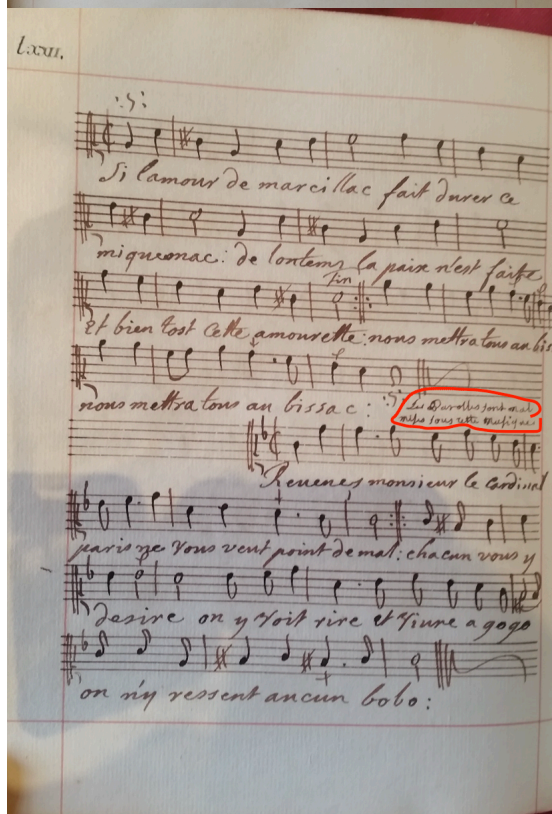 lxxii.
Si lamour de marcillac fait durer ce
miquemac: de lontems la paix n'est faitte
fin
Et bien tost cette amourette: nous mettra tous au bis
nous mettra tous au bissac:
Les Parolles sont mal
mises sous cette musique
Revenes monsieur le cardinal
paris ne vous veut point de mal: chacun vous y
desire on y voit rire et vivre a gogo
on n'y ressent aucun bobo: